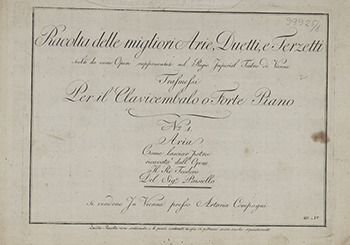 99925/8
Racolta delle migliori Arie, Duetti, e Terzetti
scelti da varie Opere rappresentate nel Regio Imperial Teatro di Vienna
Trasmessi
Per il Clavicembalo o Forte Piano
N.º 1.
Aria
Come lasciar potrei
ricavata dall' Opera
Il Re Teodoro
Del Sig.r Paisiello
si vendono In Vienna presso Artaria Compagni